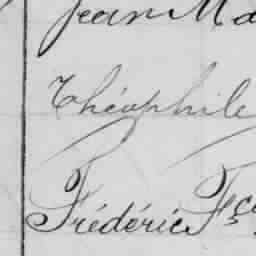 Jean Ma
Théophile
Frédéric Fçs